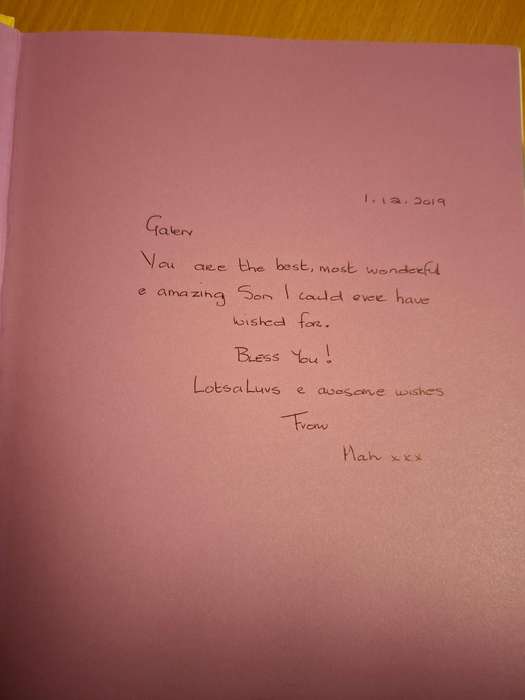 1.12.2019
Galen
You are the best, most wonderful
e amazing Son I could ever have
wished for.
Bless You!
LotsaLuvs e awosome wishes
From
Mah xxx